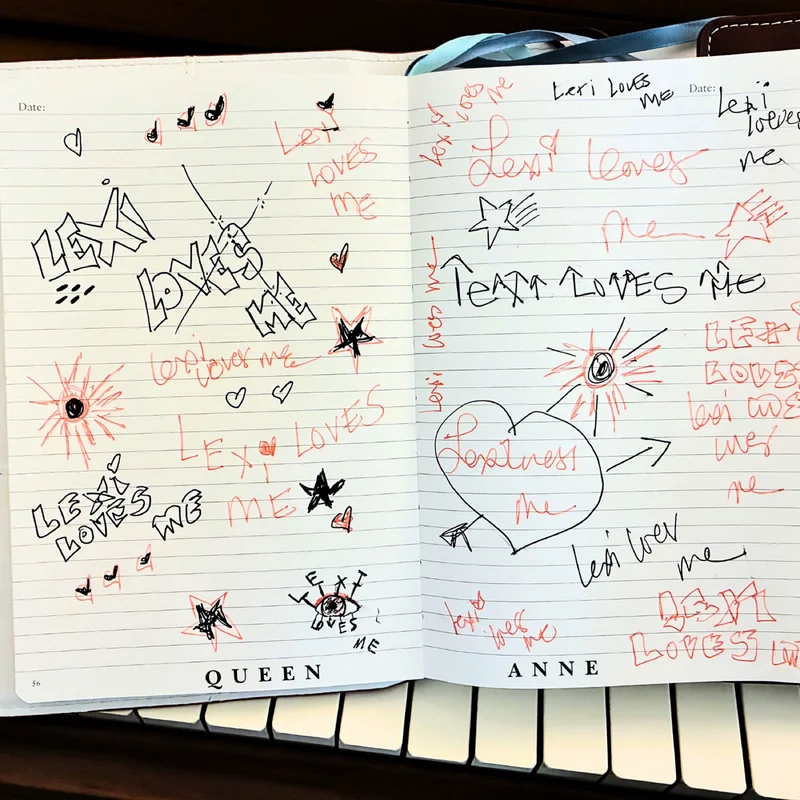 Date:
Lexi
LOVES
ME
LEXI
LOVES
ME
Lexi Loves me
LEXI LOVES
ME
LEXI
LOVES ME
LEXI
LOVES
ME
56
QUEEN
Date:
Lexi loves me
Lexi Loves
ME
Lexi
loves
me
Lexi loves
me
LEXI LOVES ME
Lexi loves me
LEXI
LOVES
lexi
me
me
Lexi loves me
Lexi
loves
me
LEXI
LOVES
ANNE